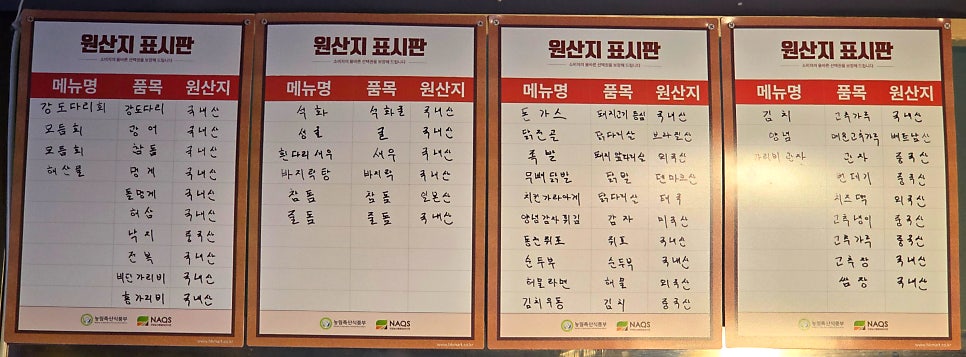 원산지 표시판
소비자의 올바른 선택권을 보장해 드립니다
메뉴명 품목 원산지
강도다리회 강도다리 국내산
모듬회 광어 국내산
모듬회 참돔 국내산
해산물 멍게 국내산
돌멍게 국내산
해삼 국내산
낙지 중국산
전복 국내산
비단가리비 국내산
홍가리비 국내산
농림축산식품부 NAQS
www.hkmart.co.kr
원산지 표시판
소비자의 올바른 선택권을 보장해 드립니다
메뉴명 품목 원산지
석화 석화굴 국내산
생굴 굴 국내산
흰다리새우 새우 국내산
바지락탕 바지락 국내산
참돔 참돔 일본산
줄돔 줄돔 국내산
농림축산식품부 NAQS
원산지 표시판
소비자의 올바른 선택권을 보장해 드립니다
메뉴명 품목 원산지
돈가스 돼지고기 등심 국내산
닭다리살 브라질산
족발 돼지 앞다리살 외국산
무뼈닭발 닭발 덴마크산
치킨가라아게 닭다리살 태국
양념감자튀김 감자 미국산
쥐포 국내산
순두부 순두부 국내산
해물라면 해물 외국산
김치우동 김치 중국산
농림축산식품부 NAQS
원산지 표시판
소비자의 올바른 선택권을 보장해 드립니다
메뉴명 품목 원산지
김치 고추가루 국내산
양념 매운고추가루 베트남산
가리비관자 관자 중국산
번데기 중국산
치즈떡 외국산
고추냉이 중국산
고추가루 중국산
고추장 국내산
쌈장 국내산
농림축산식품부 NAQS
www.hkmart.co.kr